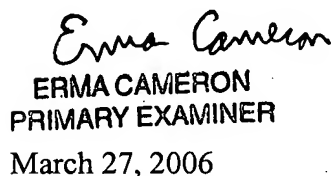 Erma Cameron
ERMA CAMERON
PRIMARY EXAMINER
March 27, 2006